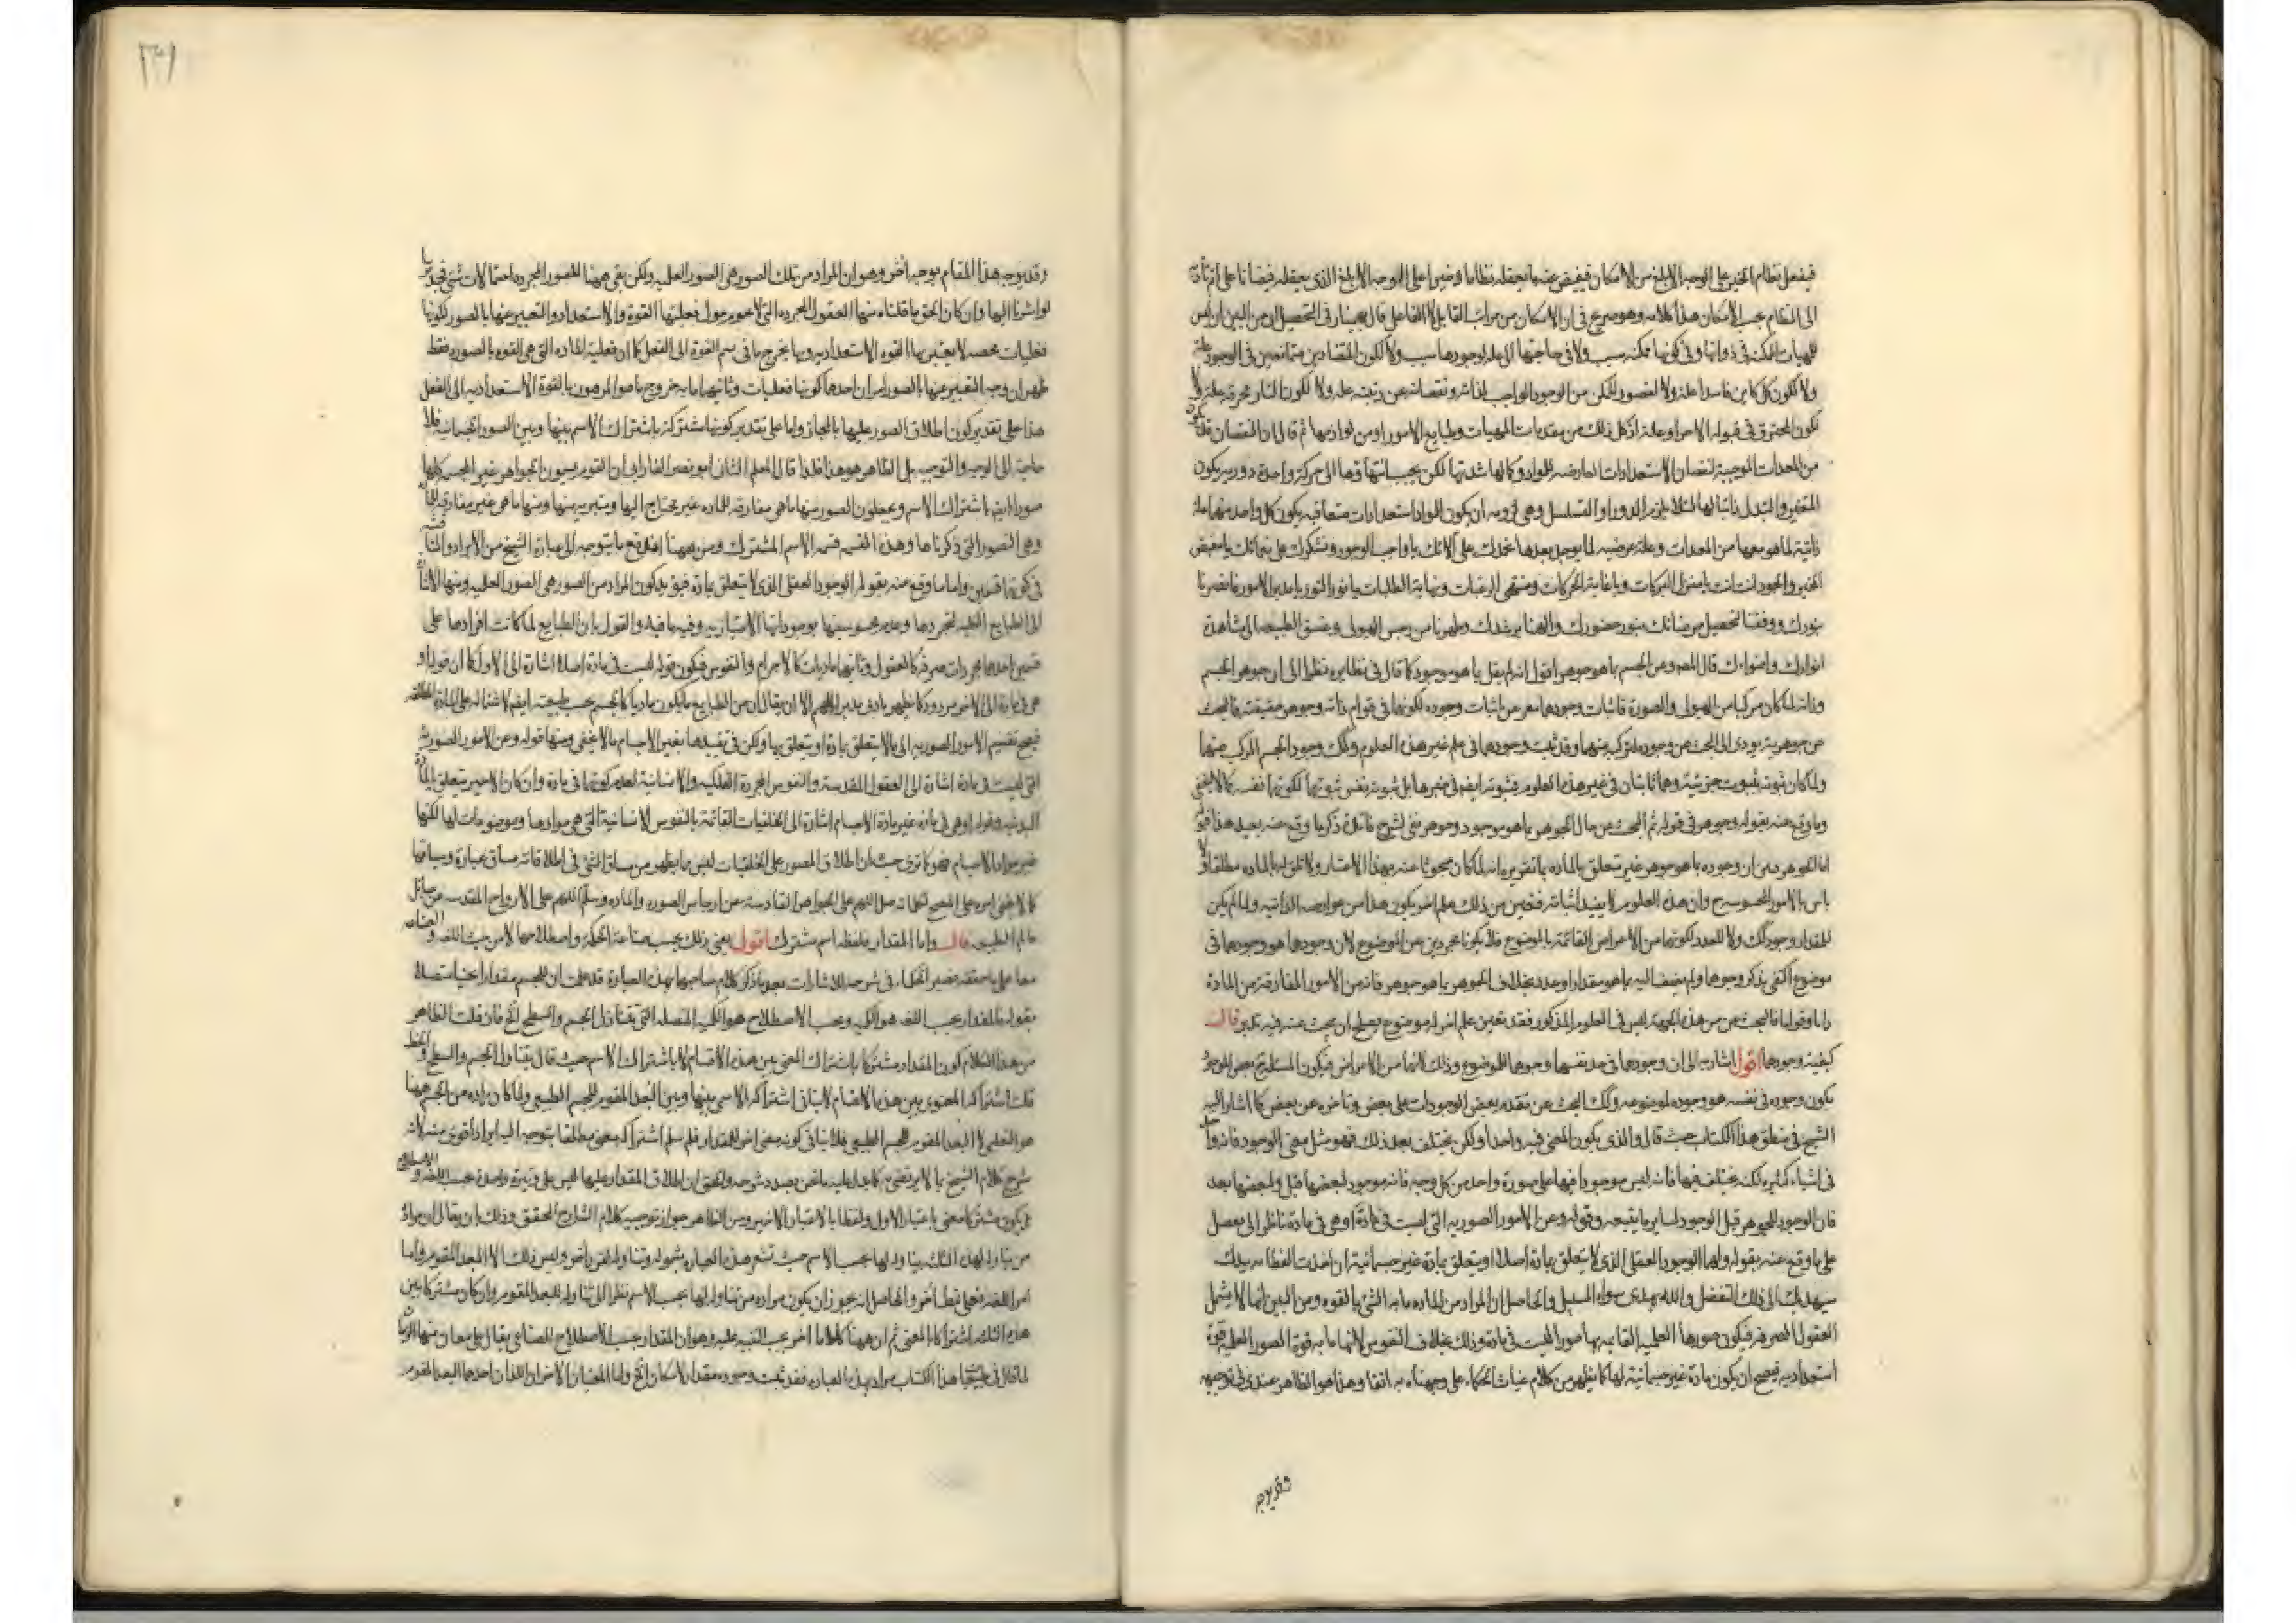 فيفعل نظام الخير على الوجه الابلغ من الامكان فيفيض عنه ما يعقله نظاما وخيرا على الوجه الابلغ الذى يعقله فيضانا على اتم تادية
الى النظام بحسب الامكان هذا كلامه وهو صريح فى ان الامكان من مراتب القابل لا الفاعل قال بهمنيار فى التحصيل ان من البين ان ليس
للمهيات الممكنة فى ذواتها وفى كونها ممكنة سبب ولا فى حاجتها الى علة لوجودها سبب ولا لكون المتضادين متمانعين فى الوجود علة
ولا لكون كل كاين فاسدا علة ولا لقصور الممكن من الوجود الواجب لذاته ونقصانه عن رتبته علة ولا لكون النار محرقة علة ولا
لكون المحترق فى قبوله الاحراق علة اذ كل ذلك من مقدمات المهيات وطبايع الامور او من لوازمها ثم قال ان النقصان قد يكون
من المعدات الموجبة لنقصان الاستعدادات العارضة للمواد وكمالها شدتها لكن يجب انتهاؤها الى حركة واحدة دورية يكون
المتغير والتبدل ذاتيا لها لئلا يلزم الدور او التسلسل وهى لزومه ان يكون للمواد استعدادات متعاقبة يكون كل واحد منها علة
ذاتية لما هو معها من المعدات وعلة عرضية لما يوجد بعدها نحمدك على آلائك يا واجب الوجود ونشكرك على نعمائك يا مفيض
الخير والجود انت انت يا منزل البركات ويا غاية الحركات ومنتهى الرغبات ونهاية الطلبات يا نور النور يا مدبر الامور فانصرنا
بنورك ووفقنا لتحصيل مرضاتك بنور حضورك والهمنا برشدك وطهرنا من رجس الهيولى وغسق الطبيعة الى مشاهدة
انوارك واضواءك قال المص وعن الجسم بما هو جوهر اقول انه لم يقل بما هو موجود كما قال فى نظايره نظرا الى ان جوهر الجسم
وذاته لما كان مركبا من الهيولى والصورة فاثبات وجودهما من اثبات وجوده لكونهما فى قوام ذاته وجوهر حقيقته فالبحث
عن جوهريته يودى الى البحث عن وجوده لتركبه منهما وقد ثبت وجودهما فى علم غير هذه العلوم وكك وجود الجسم المركب منهما
ولما كان ثبوته بثبوت جزئيه وهما ثابتان فى غير هذه العلوم فثبوته ايضا فى غيرها بل ثبوته نفس ثبوتهما لكونهما نفسه كما لا يخفى
وما وقع منه بقوله وجوهر فى قوله ثم البحث عن حال الجوهر بما هو موجود وجوهر ففى الشرح فائدة ذكر ما وقع منه بعيد هذا فقوله
اما الجوهر فبين ان وجوده بما هو جوهر غير متعلق بالمادة ما تقريره انه لما كان مبحوثا عنه بهذا الاعتبار ولا تعلق له بالمادة مطلقا ولا
باس بالامور المحسوسة وان هذه العلوم لا يفيد اثباته فتعين من ذلك علم اخر يكون هذا من عوارضه الذاتية ولما لم يكن
للمقدار وجود كك ولا للعدد لكونهما من الاعراض القائمة بالموضوع فلا يكونا مجردين عن الموضوع لان وجودها هو وجودها فى
موضوع اكتفى بذكر وجوها ولم يضف اليه بما هو مقدار او عدد بخلاف الجوهر بما هو جوهر فانه من الامور المفارقة عن المادة
ذاتا وقواما فالبحث عن هذه الجهة ليس فى العلوم المذكور فقد تعين علم اخر له موضوع يصلح ان يبحث عنه فيه تدبر قال
كيفية وجودها اقول اشارة الى ان وجودها فى حد نفسها وجودها للموضوع وذلك لانهما من الاعراض فيكون المسئلة عن الوجود
يكون وجوده فى نفسه هو وجوده لموضوعه وكك البحث عن تقدم بعض الموجودات على بعض وتاخره عن بعض كما اشار اليه
الشيخ فى منطق هذا الكتاب حيث قال والذى يكون المعنى فيه واحدا ولكن يختلف بعد ذلك فهو مثل معنى الوجود فانه واحد
فى اشياء كثيرة لكنه يختلف فيها فانه ليس موجودا فيها على صورة واحدة من كل وجه فانه موجود لبعضها قبل ولبعضها بعد
فان الوجود للجوهر قبل الوجود لساير ما يتبعه وقوله وعن الامور الصورية التى ليست فى مادة او هى فى مادة ناظر الى يعصل
على ما وقع عنه بقوله ولهما الوجود العقلى الذى لا يتعلق بمادة اصلا او يتعلق بمادة غير جسمانية ان اخذت الفطانة بيدك
سيهديك الى ذلك التفضل والله يهدى سواء السبيل والحاصل ان المراد من المادة ما به الشئ بالقوة ومن البين انها لا يشمل
العقول الصرفة فيكون صورها العلمية القايمة بها صورا ليست فى مادة وذلك بخلاف النفوس لانها ما به قوة الصور العلمية قوة
استعدادية فيصح ان يكون مادة غير جسمانية لها كما يظهر من كلام غياث الحكماء على وجهناه به انفا وهذا هو الظاهر عندى فى توجيهه
وقد يوجه
وقد يوجه هذا المقام بوجه اخر وهو ان المراد من تلك الصور هى الصور العلمية ولكن بقى ههنا للصور المجردة احتمالات شتى
او اشرنا اليها وان كان الحق ما قلناه منها العقول المجردة التى لا يحوم حول فعليتها القوة والاستعداد والتعبير عنها بالصور لكونها
فعليات محضة لا يعتريها القوة الاستعدادية وبها يخرج ما فى سم القوة الى الفعل كما ان فعلية المادة التى هى القوة بالصورة فقط
ظهر ان وجه التعبير عنها بالصور امران احدها كونها فعليات وثانيهما ما به خروج ما هو المرهون بالقوة الاستعدادية الى الفعل
هذا على تقدير كون اطلاق الصور عليها بالمجاز واما على تقدير كونها مشتركة باشتراك الاسم بينها وبين الصور الجسمانية فلا
حاجة الى الوجه والتوجيه بل الظاهر هو هذا فلذا قال المعلم الثانى ابو نصر الفارابى ان القوم يسمون الجواهر غير الجسم كلها
صورا ايضا باشتراك الاسم ويجعلون الصور منها ما هى مفارقة للمادة غير محتاج اليها ومتبرية منها ومنها ما هى غير مفارقة للمادة
وهى الصور التى ذكرناها وهذه القسمة قسمة الاسم المشترك ومن ههنا اندفع ما يتوجه الى عبارة الشيخ من الايراد
فى كونها قسمين واما ما وقع منه بقوله الوجود العقلى الذى لا يتعلق بمادة فيؤيد كون المراد من الصور هى الصور العلمية ومنها الاشارة
الى الطبايع الكلية لتجردها وعدم محسوسيتها بوجوداتها الامتيازية وفيه ما فيه والقول بان الطبايع لما كانت افرادها على
قسمين احدهما مجردات صرفة كالعقول وثانيهما ماديات كالاجرام والنفوس فيكون قوله ليست فى مادة اصلا اشارة الى الاول كما ان قوله او
هى فى مادة الى الاخر مردود كما يظهر بادنى تدبر اللهم الا ان يقال ان من الطبايع ما يكون ماديا كالجسم بحسب طبيعته ايضا لاشتماله على المادة المطلقة
فيصح تقسيم الامور الصورية الى ما لا يتعلق بمادة او يتعلق بها ولكن فى تقييدها بغير الاجسام ما لا يخفى ومنها قوله وعن الامور الصورية
التى ليست فى مادة اشارة الى العقول المقدسة والنفوس المجردة الفلكية والانسانية لعدم كونها فى مادة وان كان الاخير يتعلق بالمادة
البدنية وقوله او هى فى مادة غير مادة الاجسام اشارة الى الخلقيات القائمة بالنفوس الانسانية التى هى موادها وموضوعات لها لكنها
غير مواد الاجسام فهو كما ترى حيث ان اطلاق الصور على الخلقيات ليس ما يظهر من مساق الشئ فى اطلاقاته مساق عبارة وسياقها
كما لا يخفى امره على المتصفح لكلماته صل اللهم على الجواهر القادسة عن ارجاس الصورة والمادة وسلم اللهم على الارواح المقدسة من رسائل
عالم الطبيعة قال واما المقدار فلفظه اسم مشترك اقول يعنى ذلك بحسب صناعة الحكمة واصطلاحها لا من حيث اللغة والصناعة
معا على ما حققه نصير الحكماء فى شرحه للاشارات بعد ما ذكر كلام صاحبها بهذه العبارة قد علمت ان للجسم مقدارا ثخينا متصلا
بقوله المقدار بحسب اللغة هو الكمية وبحسب الاصطلاح هو الكمية المتصلة التى يتناول الجسم والسطح الخ فان قلت الظاهر
من هذا الكلام كون المقدار مشتركا باشتراك المعنى بين هذه الاقسام لا باشتراك الاسم حيث قال يتناول الجسم والسطح والخط
قلت اشتراكه المعنوى بين هذه الاقسام لا ينافى اشتراكه الاسمى بينها وبين البعد المقوم للجسم الطبيعى ولما كان مراده من الجسم ههنا
هو التعليمى لا البعد المقوم للجسم الطبيعى فلا ينافى كونه بمعنى اخر للمقدار فلم سلم اشتراكه بمعنى مطلقا يتوجه اليه ايراد اقوى منه لانه
شرح كلام الشيخ بما لا يرتضى به كما يدل عليه ما نحن بصدد شرحه والحق ان اطلاق المقدار عليها ليس على وتيرة واحدة بحسب اللغة والاصطلاح
بل يكون مشتركا معنى باعتبار الاول ولفظا بالاعتبار الاخير ومن الظاهر جواز توجيه كلام الشارح المحقق وذلك بان يقال ان مراده
من تناوله لهذه الثلث يتناولها بحسب الاسم حيث تشعر هذه العبارة بشموله وتناوله لغيرها خر وليس ذلك الا البعد المقوم واما
امر اللغة فعلى نمط اخر والحاصل انه يجوز ان يكون مراده من تناولها بحسب الاسم نظرا الى تناوله للبعد المقوم وان كان مشتركا بين
هذه الثلثة اشتراكا بالمعنى ثم ان ههنا كلاما اخر يجب التنبيه عليه وهو ان المقدار بحسب الاصطلاح الصناعى يقال على معان منها الزمان
لما قال فى طبيعيات هذا الكتاب مرارا بهذه العبارة فقد ثبت وجود مقدار لامكان الخ واما المعنيان الاخران اللذان احدهما البعد المقوم